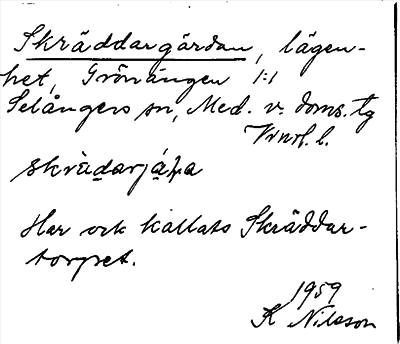 Skräddargärdan, lägen-
het, Grönängen 1:1
Selångers sn, Med. v. doms. tg
Vrnl. l.
skrädarjäła
Har ock kallats Skräddar-
torpet.
1959
K Nilsson